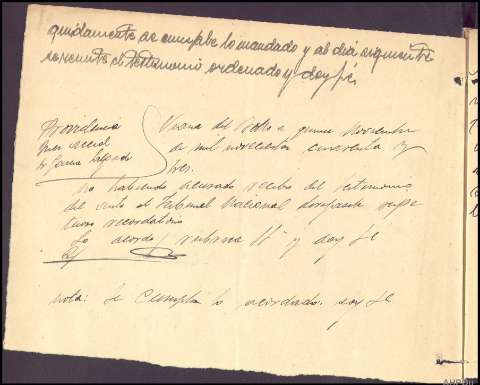 quidamente se cumple lo mandado y al dia siguiente
se remite el testimonio ordenado y doy fe.
Providencia
Juez acctal
Sr Garcia Salgado
Viana del Bollo a quince Noviembre
de mil novecientos cincuenta y
tres.
No habiendo acusado recibo del testimonio
del auto el Tribunal Nacional
recordatorio
Lo acordó rubrica Sª y doy fe
nota: Se Cumple lo acordado. doy fe